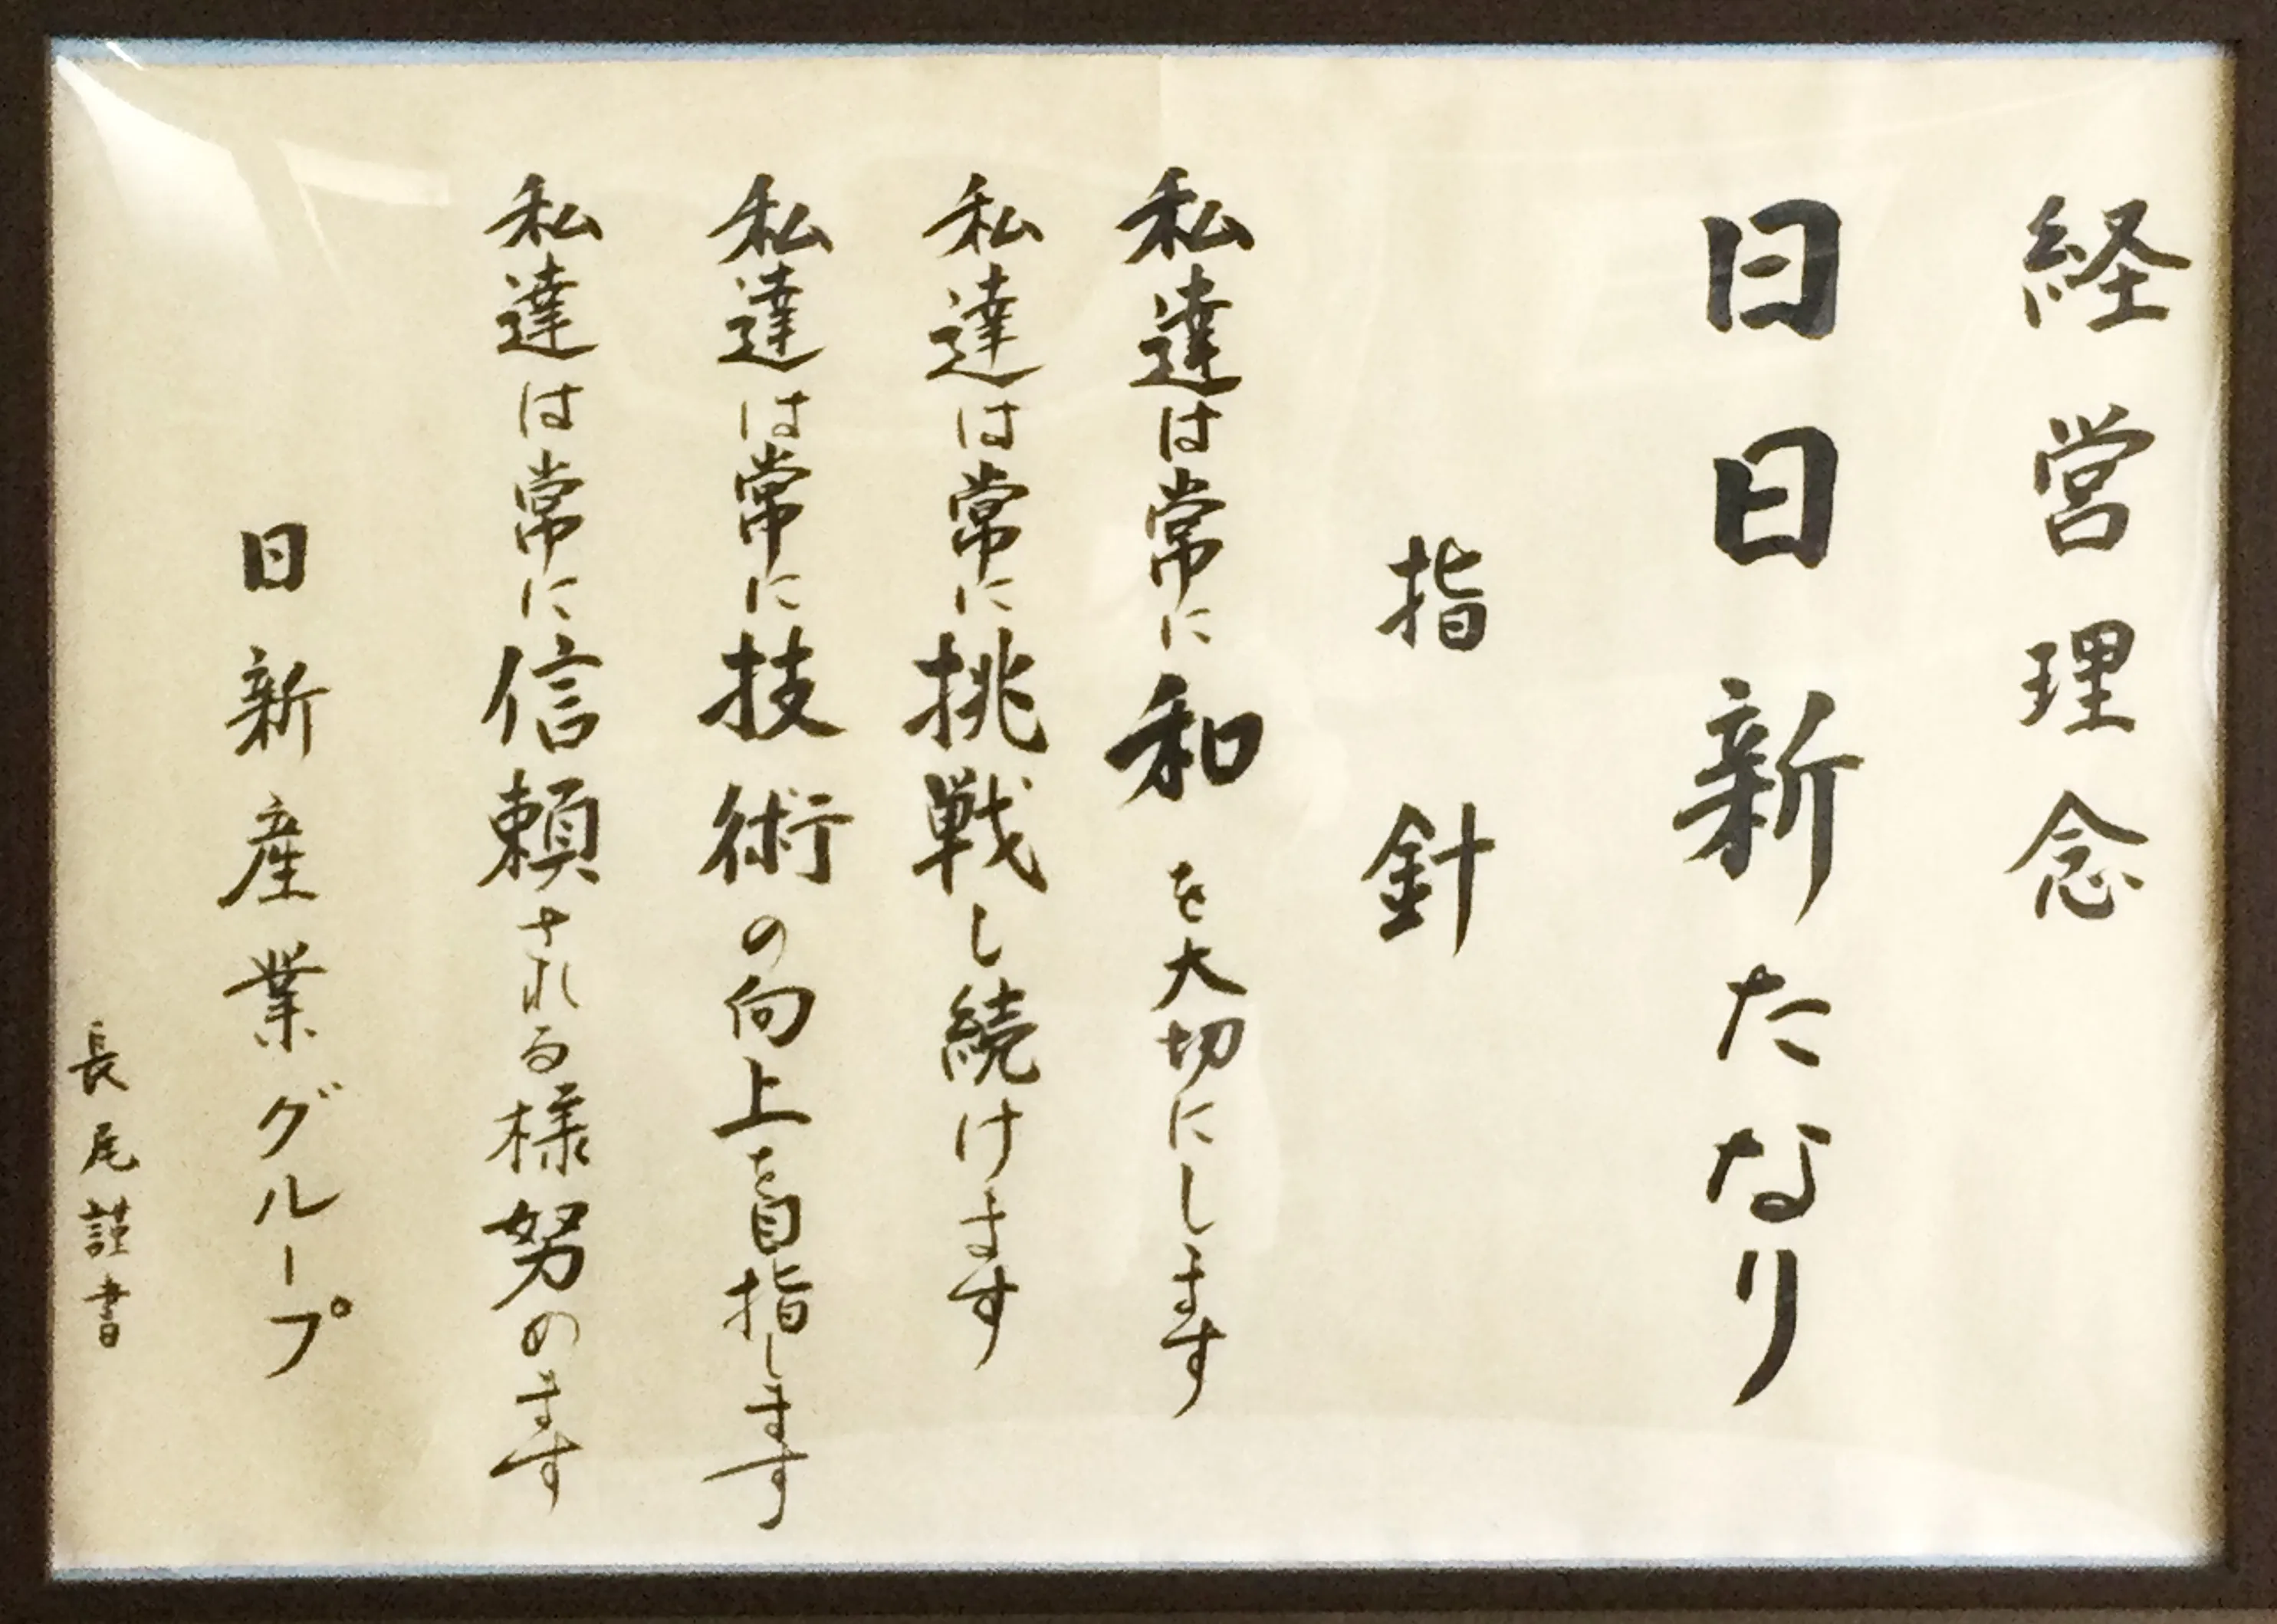 経営理念
日日新たなり
指針
私達は常に和を大切にします
私達は常に挑戦し続けます
私達は常に技術の向上を目指します
私達は常に信頼される様努めます
日新産業グループ
長尾謹書